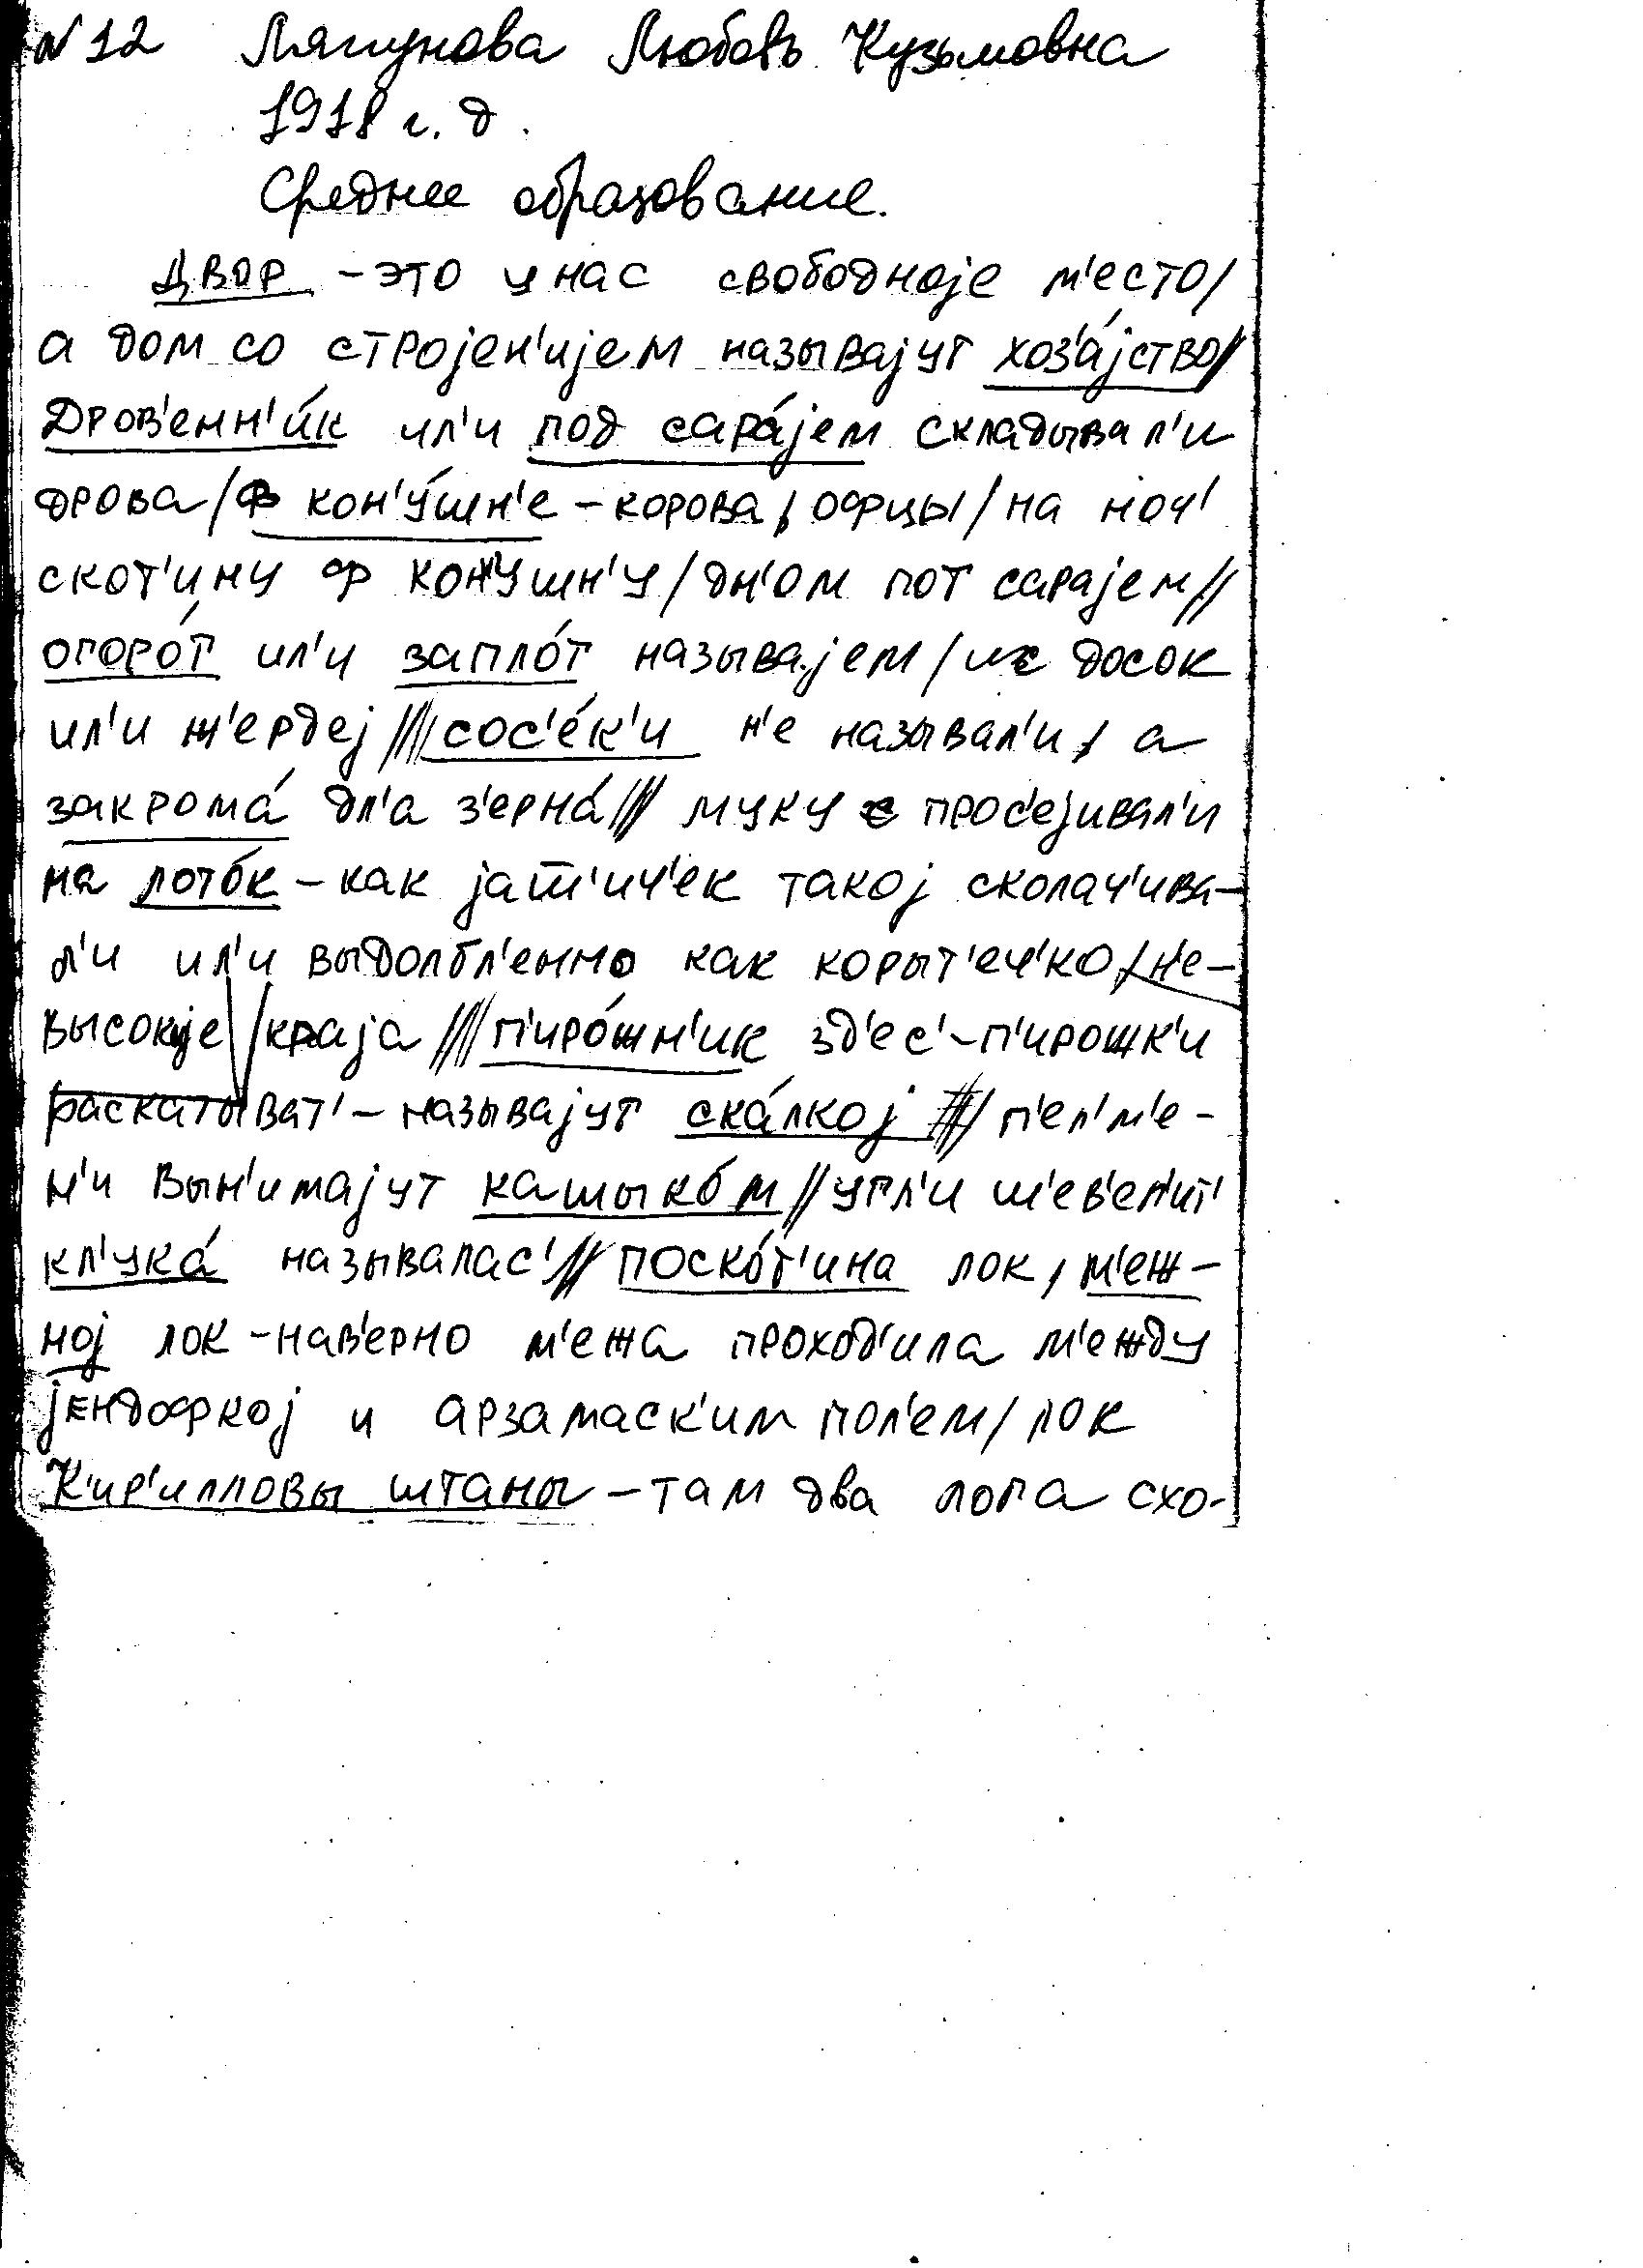 №12 Лягунова Любовь Кузьмовна
1918 г. д.
Среднее образование.
двор – это у нас свободноjе м'есто/
а дом со строjен'иjем называjут хоз'ájство//
Дров'енн'и́к ил'и под сарájем складывал'и
дрова/ф кон'у́шн'е – корова, офцы/на ноч'
скот'ину ф кон'ушн'у/дн'ом пот сараjем//
огорóт ил'и заплóт называjем/ис досок
ил'и ж'ердеj///сос'éк'и н'е называл'и, а
закромá дл'а з'ернá/// муку прос'еjивал'и
на лотóк – как jаш'ич'ек такоj сколач'ива–
л'и ил'и выдолбл'енно как корыт'еч'ко/н'е–
высокиjе/краjа///п'ирóжн'ик зд'ес' – п'ирожк'и
раскатыват' – называjут скáлкоj///п'ел'м'е–
н'и вын'имаjут кашыкóм//угл'и ш'ев'ел'ит'
кл'укá называлас'//поскóт'ина лок, м'еж–
ноj лок – нав'ерно м'ежа проход'ила м'ежду
jендофкоj и арзамаск'им пол'ем/лок
К'ир'илловы штаны – там два лога схо-